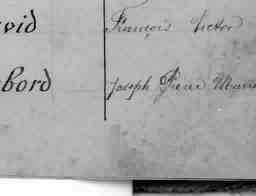 vid François Victor
bord Joseph Pierre Marie